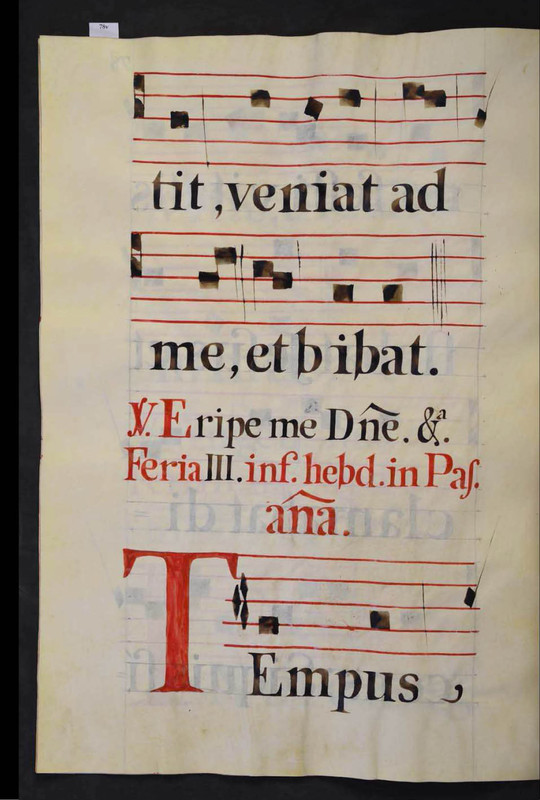 79v
tit, veniat ad
me, et bibat.
℣. Eripe me Dn̄e. &ª.
Feria III. inf. hebd. in Paſ.
an̄a.
TEmpus